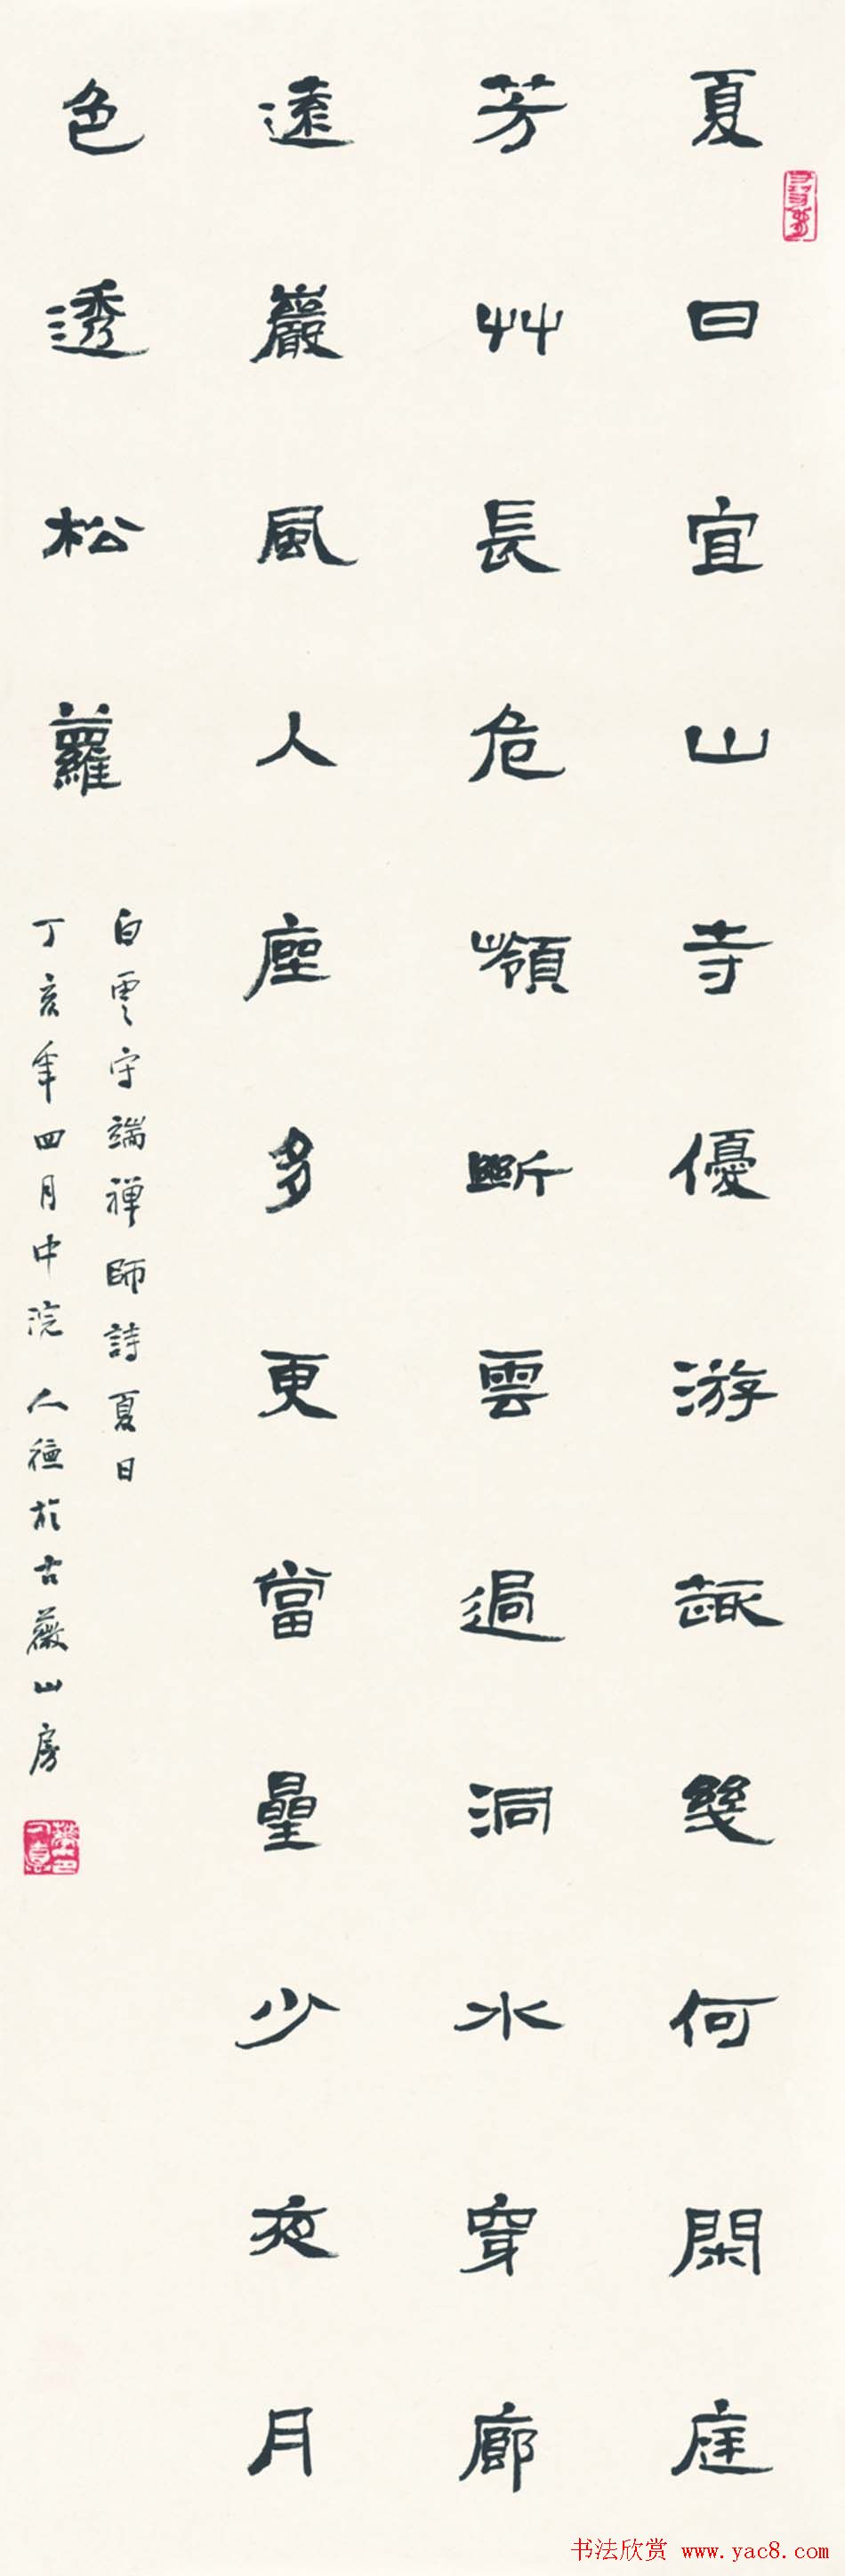 夏日宜山寺優游趣幾何閑庭
芳艸長危嶺斷雲過洞水穿廊
遠巖風人座多更當星少夜月
色透松蘿
白雲守端禅師詩夏日
丁亥年四月中浣 人德於古薇山房
书法欣赏 www.yac8.com